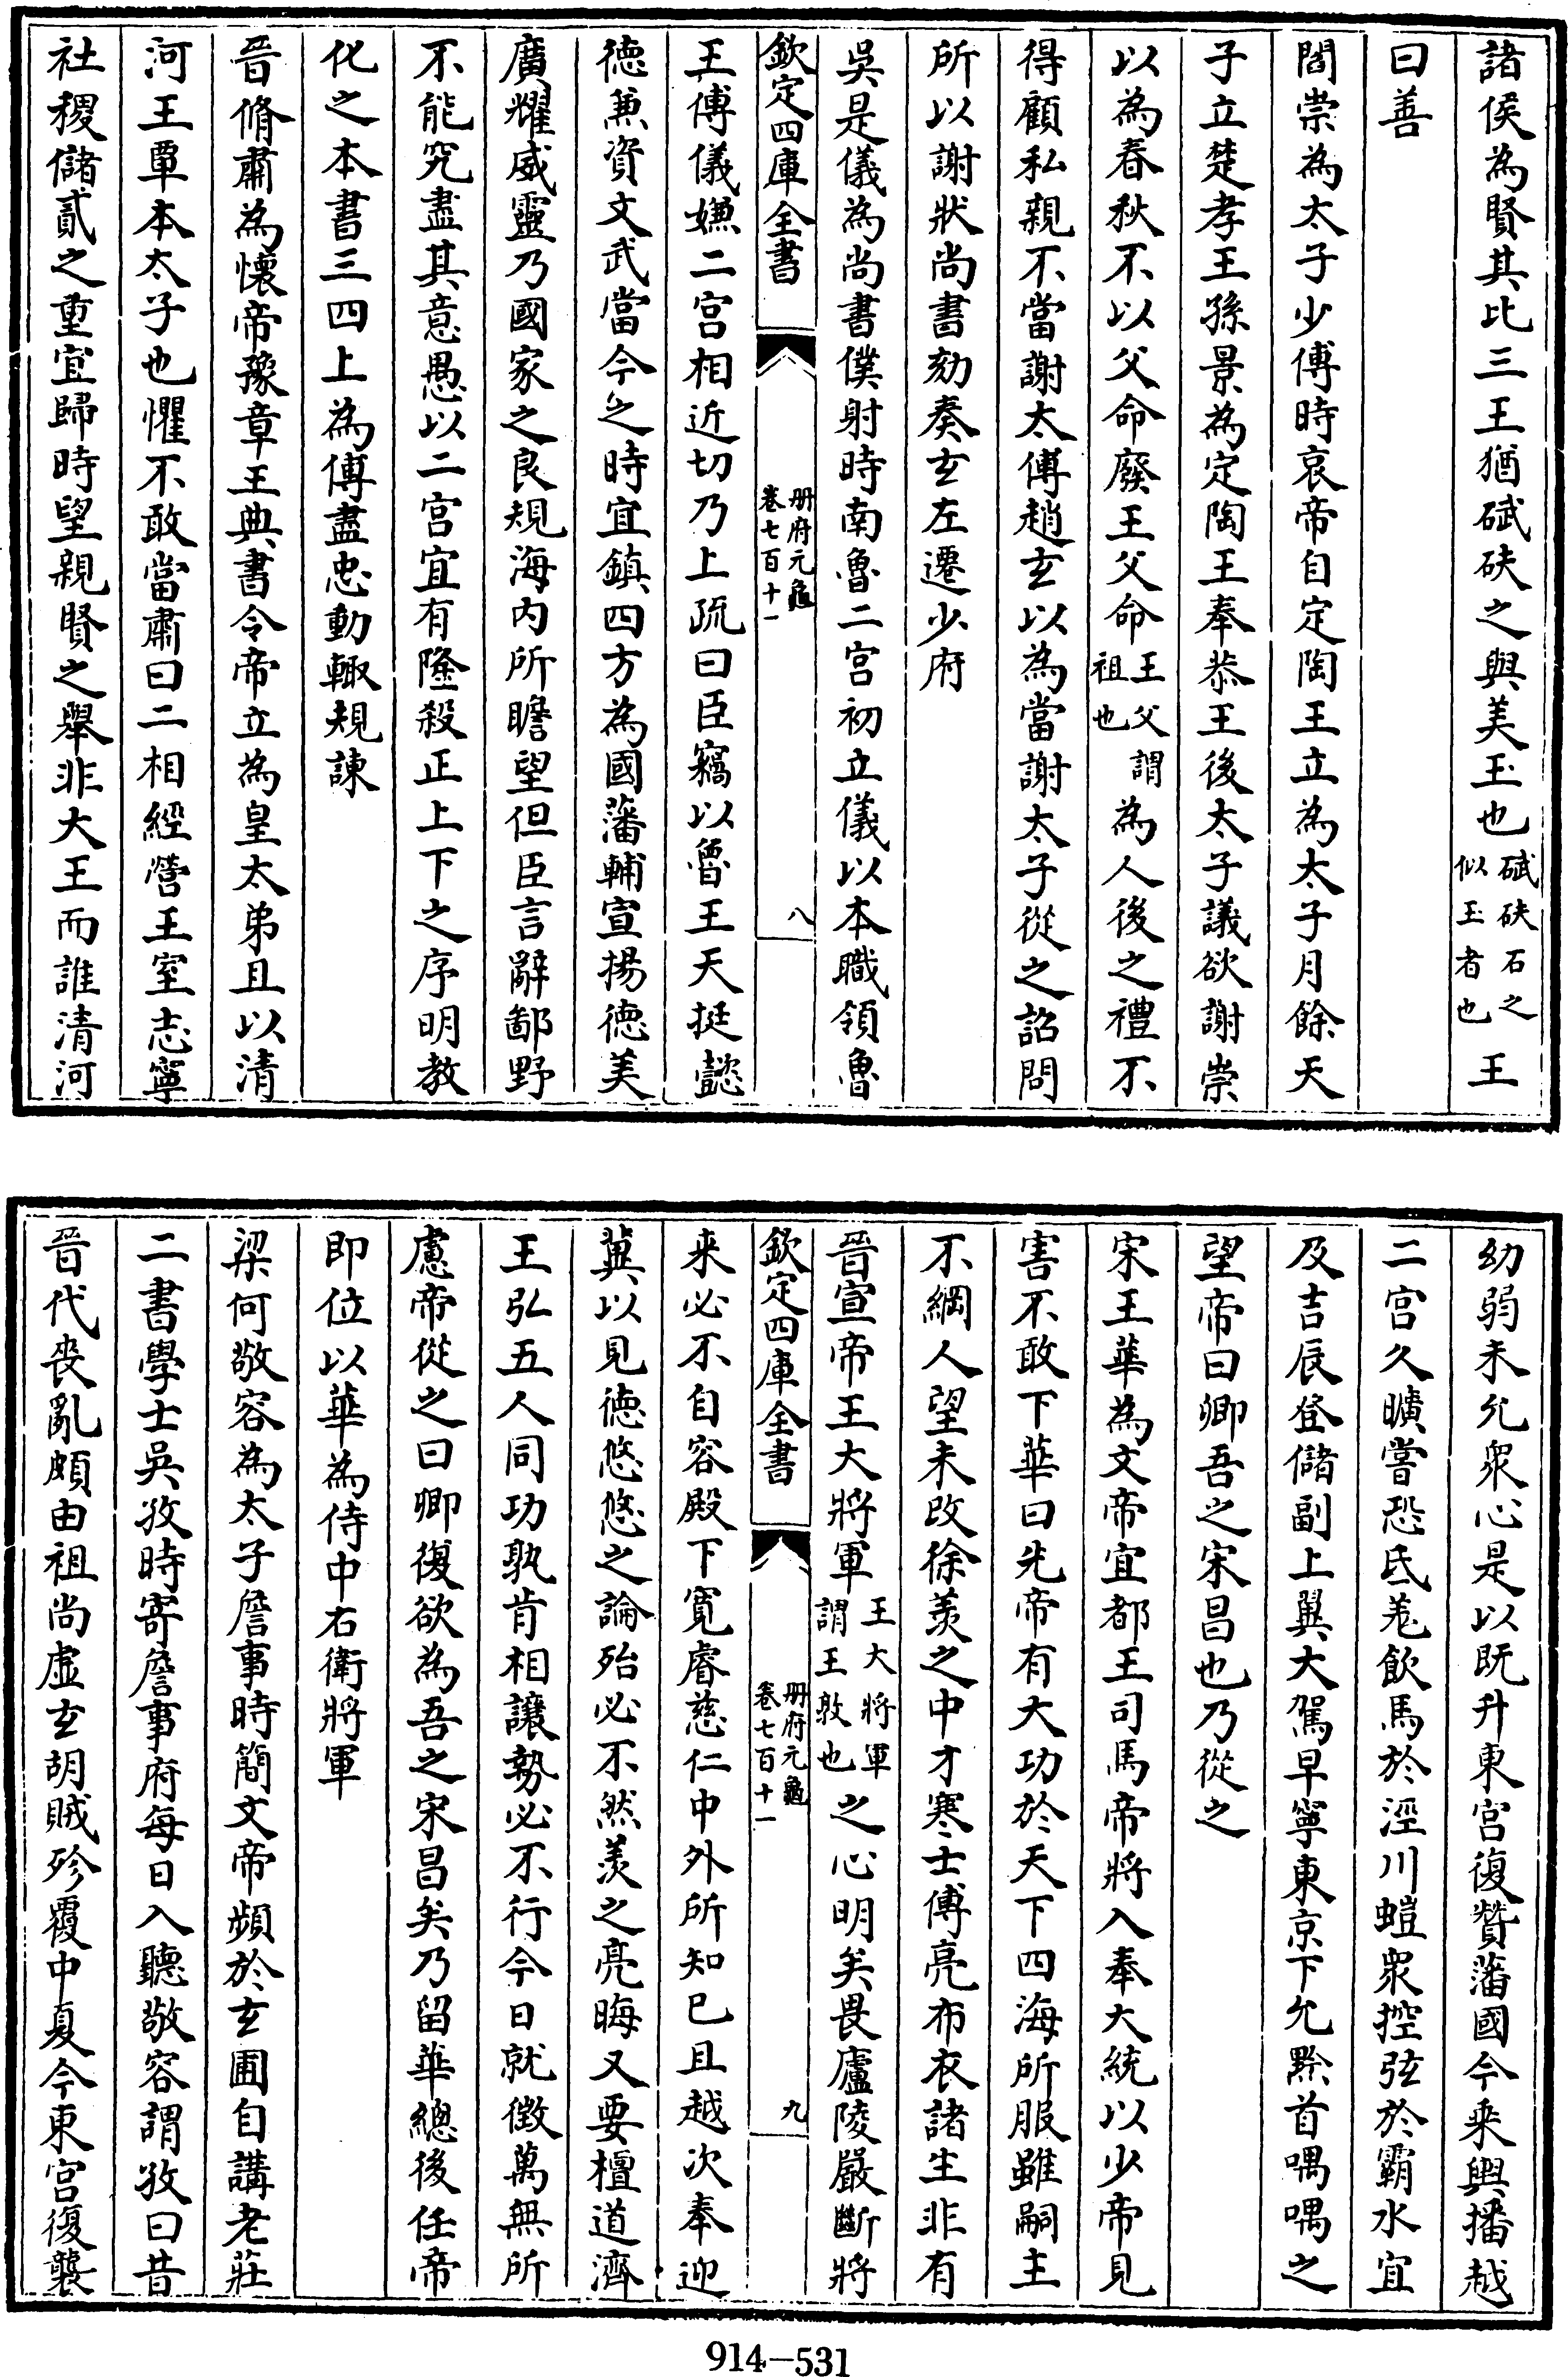 諸侯為賢其比三王猶碔砆之與美玉也碔砆石之似玉者也王
曰善
閻崇為太子少傅時哀帝自定陶王立為太子月餘天
子立楚孝王孫景為定陶王奉恭王後太子議欲謝崇
以為春秋不以父命廢王父命王父謂祖也為人後之禮不
得顧私親不當謝太傅趙玄以為當謝太子從之詔問
所以謝狀尚書劾奏玄左遷少府
吳是儀為尚書僕射時南魯二宮初立儀以本職領魯
欽定四庫全書
冊府元龜
卷七百十一
八
王傅儀嫌二宮相近切乃上疏曰臣竊以魯王天挺懿
德兼資文武當今之時宜鎮四方為國藩輔宣揚德美
廣耀威靈乃國家之良規海內所瞻望但臣言辭鄙野
不能究盡其意愚以二宮宜有隆殺正上下之序明教
化之本書三四上為傅盡忠動輙規諫
晉脩肅為懷帝豫章王典書令帝立為皇太弟且以清
河王覃本太子也懼不敢當肅曰二相經營王室志寧
社稷儲貳之重宜歸時望親賢之舉非大王而誰清河
幼弱未允衆心是以既升東宮復贊藩國今乘輿播越
二宮久曠嘗恐氐羗飲馬於涇川螘衆控弦於霸水宜
及吉辰登儲副上翼大駕早寧東京下允黔首喁喁之
望帝曰卿吾之宋昌也乃從之
宋王華為文帝宜都王司馬帝將入奉大統以少帝見
害不敢下華曰先帝有大功於天下四海所服雖嗣主
不綱人望未改徐羨之中才寒士傅亮布衣諸生非有
晉宣帝王大將軍王大將軍謂王敦也之心明矣畏廬陵嚴斷將
欽定四庫全書
冊府元龜
卷七百十一
九
来必不自容殿下寬睿慈仁中外所知已且越次奉迎
冀以見徳悠悠之論殆必不然羨之亮晦又要檀道濟
王弘五人同功孰肯相讓勢必不行今日就徵萬無所
慮帝從之曰卿復欲為吾之宋昌矣乃留華總後任帝
即位以華為侍中右衛將軍
梁何敬容為太子詹事時簡文帝頻於玄圃自講老莊
二書學士吳孜時寄詹事府每日入聽敬容謂孜曰昔
晉代喪亂頗由祖尚虛玄胡賊殄覆中夏今東宮復襲
914-531